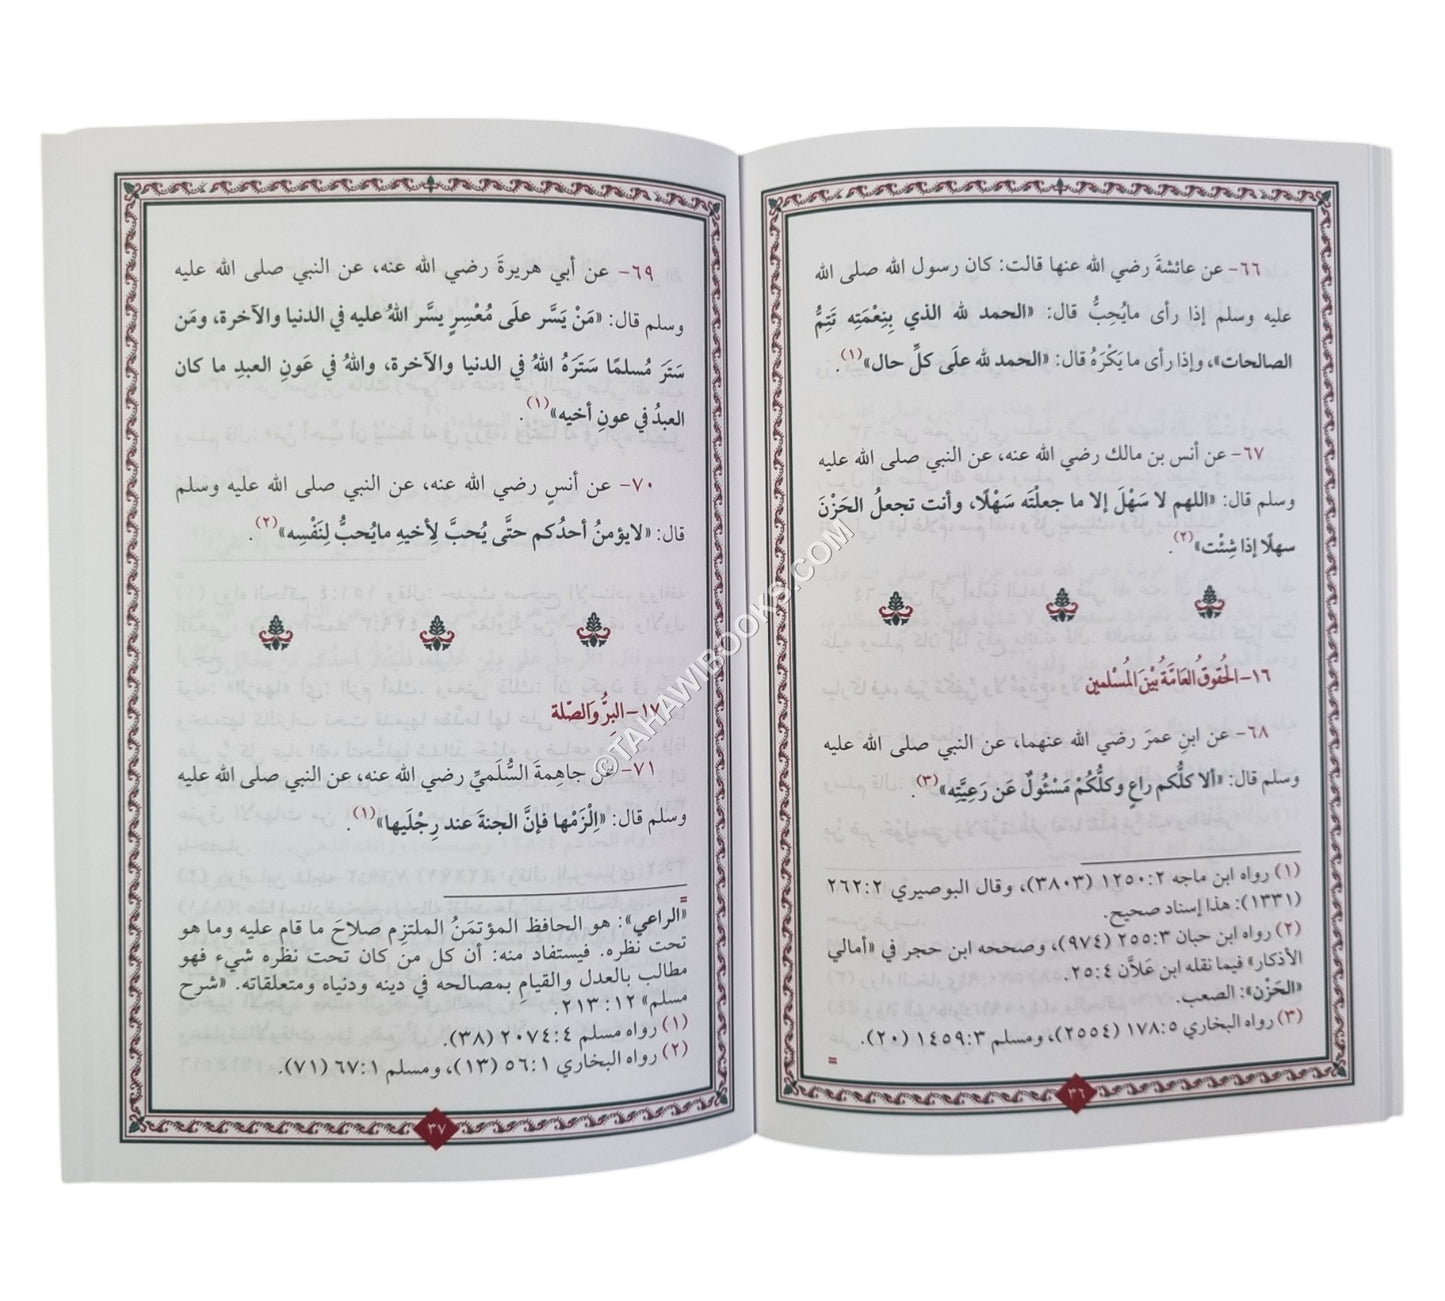 ٦٦- عن عائشةَ رضي الله عنها قالت: كان رسول الله صلى الله
عليه وسلم إذا رأى مايُحِبُّ قال: «الحمد لله الذي بِنِعْمَتِه تَتِمُّ
الصالحات»، وإذا رأى ما يَكْرَهُ قال: «الحمد لله علَى كلِّ حال»(١).
٦٧- عن أنس بن مالك رضي الله عنه، عن النبي صلى الله عليه
وسلم قال: «اللهم لا سَهْلَ إلا ما جعلْتَه سَهْلًا، وأنت تجعلُ الحَزْنَ
سهلًا إذا شِئْت»(٢).
١٦- الحُقوقُ العَامَّةُ بَيْنَ المُسْلمين
٦٨- عن ابنِ عمرَ رضي الله عنهما، عن النبي صلى الله عليه
وسلم قال: «ألا كلُّكم راعٍ وكلُّكُمْ مَسْئُولٌ عَن رَعِيَّتِه»(٣).
(١) رواه ابن ماجه ١٢٥٠:٢ (٣٨٠٣)، وقال البوصيري ٢٦٢:٢
(١٣٣١): هذا إسناد صحيح.
(٢) رواه ابن حبان ٢٥٥:٣ (٩٧٤)، وصححه ابن حجر في «أمالي
الأذكار» فيما نقله ابن عَلاَّن ٢٥:٤.
«الحَزْن»: الصعب.
(٣) رواه البخاري ١٧٨:٥ (٢٥٥٤)، ومسلم ١٤٥٩:٣ (٢٠).
=
٣٦
٦٩- عن أبي هريرةَ رضي الله عنه، عن النبي صلى الله عليه
وسلم قال: «مَنْ يَسَّر علَى مُعْسِرٍ يسَّر اللهُ عليه في الدنيا والآخرة، ومَن
سَتَرَ مُسلمًا سَتَرَهُ اللهُ في الدنيا والآخرة، واللهُ في عَونِ العبدِ ما كان
العبدُ في عونِ أخيه»(١).
٧٠- عن أنسٍ رضي الله عنه، عن النبي صلى الله عليه وسلم
قال: «لايؤمنُ أحدُكم حتَّى يُحبَّ لِأخيهِ مايُحبُّ لِنَفْسِه»(٢).
١٧- البرُّ وَالصّلة
٧١- عن جاهِمةَ السُّلَميِّ رضي الله عنه، عن النبي صلى الله عليه
وسلم قال: «اِلْزَمْها فإنَّ الجنةَ عند رِجْلَيها»(١).
=
«الراعي»: هو الحافظ المؤتمَنُ الملتزِم صلاحَ ما قام عليه وما هو
تحت نظره. فيستفاد منه: أن كل من كان تحت نظره شيء فهو
مطالب بالعدل والقيامِ بمصالحه في دينه ودنياه ومتعلقاته. «شرح
مسلم» ٢١٣:١٢.
(١) رواه مسلم ٢٠٧٤:٤ (٣٨).
(٢) رواه البخاري ٥٦:١ (١٣)، ومسلم ٦٧:١ (٧١).
٣٧
©TAHAWIBOOKS.COM